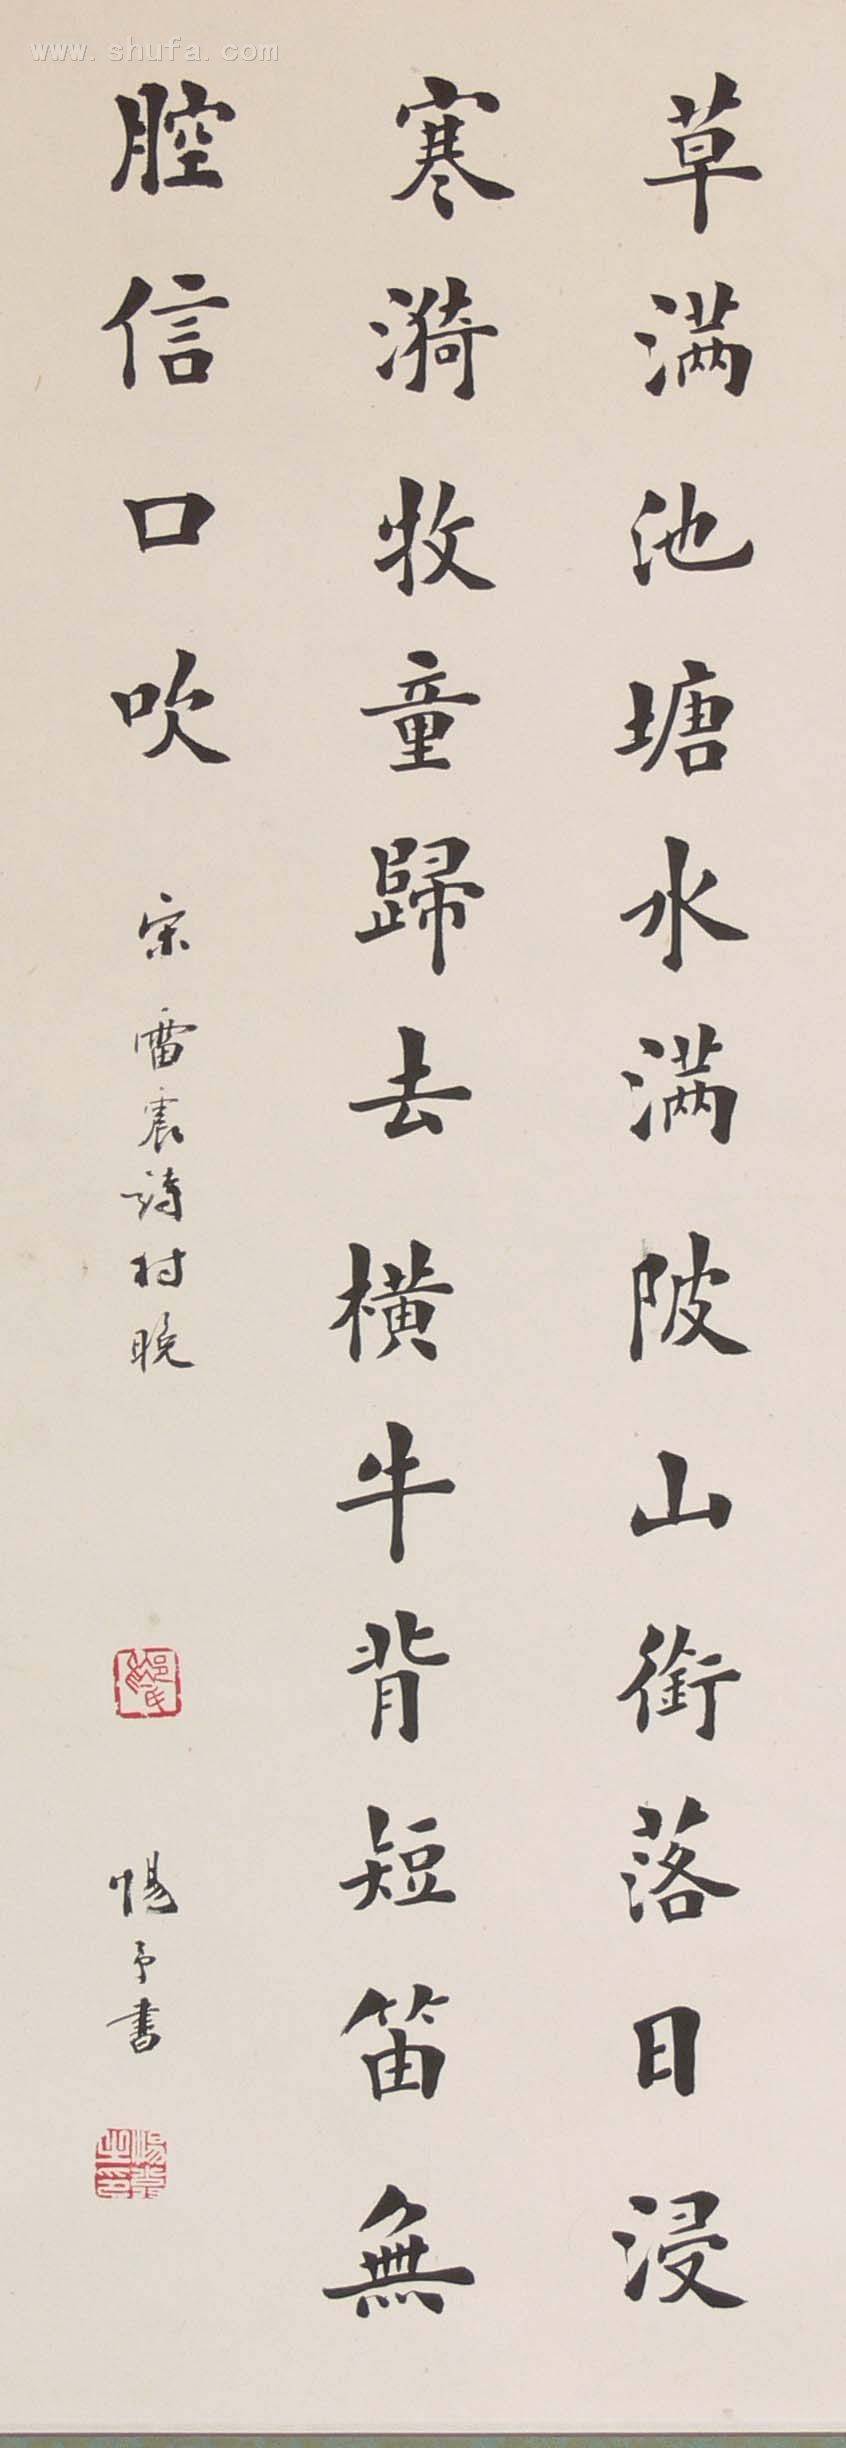 www.shufa.com
草满池塘水满陂山銜落日浸
寒漪牧童歸去橫牛背短笛無
腔信口吹
宋雷震詩村晚
惕予書